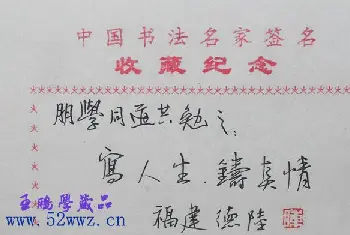 中国书法名家签名
收藏纪念
朋學同道共勉之:
寫人生.鑄真情
福建德陸
王鵬學藏品
www.52wwz.cn